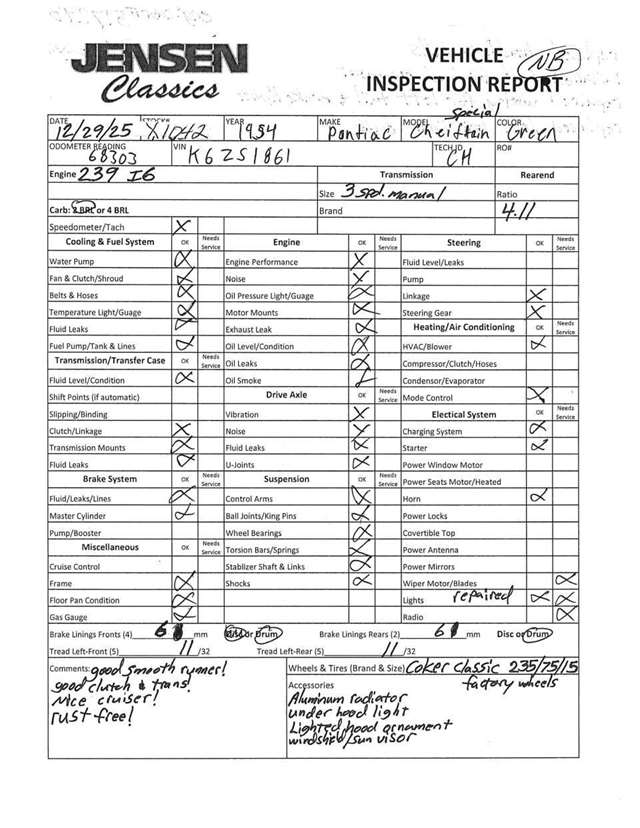 JENSEN
Classics
VEHICLE
INSPECTION REPORT
NB
DATE 12/29/25 X1042 YEAR 1954 MAKE Pontiac MODEL Cheiftain Special COLOR Green
ODOMETER READING 68303 VIN K6ZS1861 TECH ID CH RO#
Engine 239 I6 Transmission Rearend
Size 3 spd. manual Ratio 4.11
Carb: 2 BRL or 4 BRL Brand
Speedometer/Tach X
Cooling & Fuel System OK Needs Service Engine OK Needs Service Steering OK Needs Service
Water Pump Engine Performance Fluid Level/Leaks
Fan & Clutch/Shroud Noise Pump
Belts & Hoses Oil Pressure Light/Guage Linkage
Temperature Light/Guage Motor Mounts Steering Gear
Fluid Leaks Exhaust Leak Heating/Air Conditioning OK Needs Service
Fuel Pump/Tank & Lines Oil Level/Condition HVAC/Blower
Transmission/Transfer Case OK Needs Service Oil Leaks Compressor/Clutch/Hoses
Fluid Level/Condition Oil Smoke Condensor/Evaporator
Shift Points (if automatic) Drive Axle OK Needs Service Mode Control
Slipping/Binding Vibration Electical System OK Needs Service
Clutch/Linkage Noise Charging System
Transmission Mounts Fluid Leaks Starter
Fluid Leaks U-Joints Power Window Motor
Brake System OK Needs Service Suspension OK Needs Service Power Seats Motor/Heated
Fluid/Leaks/Lines Control Arms Horn
Master Cylinder Ball Joints/King Pins Power Locks
Pump/Booster Wheel Bearings Covertible Top
Miscellaneous OK Needs Service Torsion Bars/Springs Power Antenna
Cruise Control Stablizer Shaft & Links Power Mirrors
Frame Shocks Wiper Motor/Blades
Floor Pan Condition Lights repaired
Gas Gauge Radio
Brake Linings Fronts (4) 6 mm Disc or Drum Brake Linings Rears (2) 6 mm Disc or Drum
Tread Left-Front (5) 11 /32 Tread Left-Rear (5) 11 /32
Comments: good smooth runner!
good clutch & trans!
Nice cruiser!
rust free!
Wheels & Tires (Brand & Size) Coker Classic 235/75/15
factory wheels
Accessories
Aluminum radiator
under hood light
Lighted hood ornament
windshield/sun visor